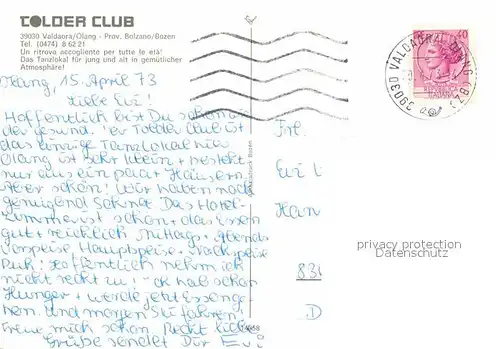 TOLDER CLUB
39030 Valdaora/Olang - Prov. Bolzano/Bozen
Tel. (0474) 8 62 21
Un ritrovo accogliente per tutte le età!
Das Tanzlokal für jung und alt in gemütlicher
Atmosphäre!
Olang, 15. April 73
Liebe Evi!
Hoffentlich bist Du schon wie
der gesund. Der Tolder Club ist
das einzige Tanzlokal in
Olang ist sehr klein + besteht
nur aus ein paar Häusern.
Aber schön! Wir haben noch
genügend Schnee. Das Hotel-
zimmer ist schön + das Essen
gut + reichlich Mittags + abends
Vorspeise Hauptspeise + Nachspeise
Puh! Hoffentlich nehm ich
nicht recht zu! Ich hab schon
Hunger + werde jetzt Essen ge-
hen. Und morgen Ski fahren.
Freue mich schon. Recht liebe
Grüße sendet Dir Evi
Frl.
Evi L
Han
831
D
39030 VALDAORA OLANG (BZ)
privacy protection
Datenschutz